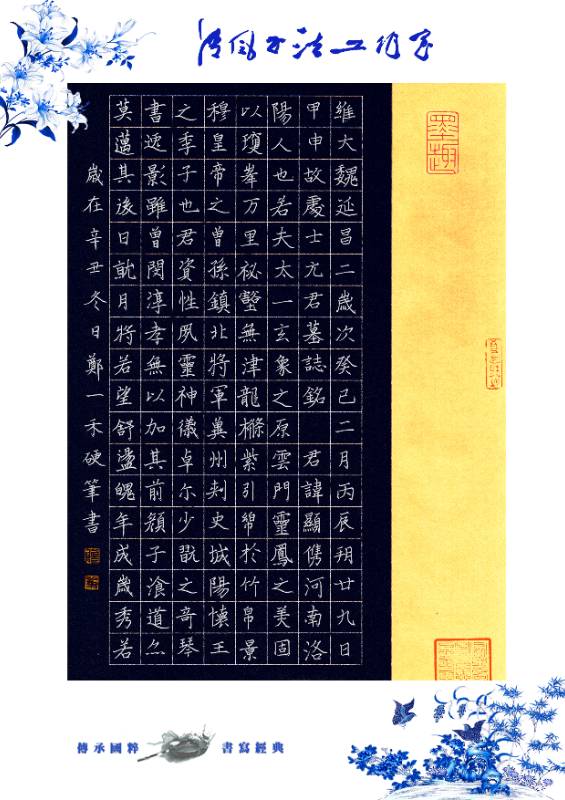 墨趣
維大魏延昌二歲次癸巳二月丙辰朔廿九日
甲申故處士元君墓誌銘　君諱顯儁河南洛
陽人也若夫太一玄象之原雲門靈鳳之美固
以瓊峯万里祕壑無津龍檦紫引綿於竹帛景
穆皇帝之曾孫鎮北將軍兾州刾史城陽懷王
之季子也君資性夙靈神儀卓尒少翫之奇琴
書逕影雖曾閔淳孝無以加其前顏子湌道亦
莫邁其後日就月將若望舒盪魄年成歲秀若
歲在辛丑冬日鄭一禾硬筆書
傳承國粹
書寫經典